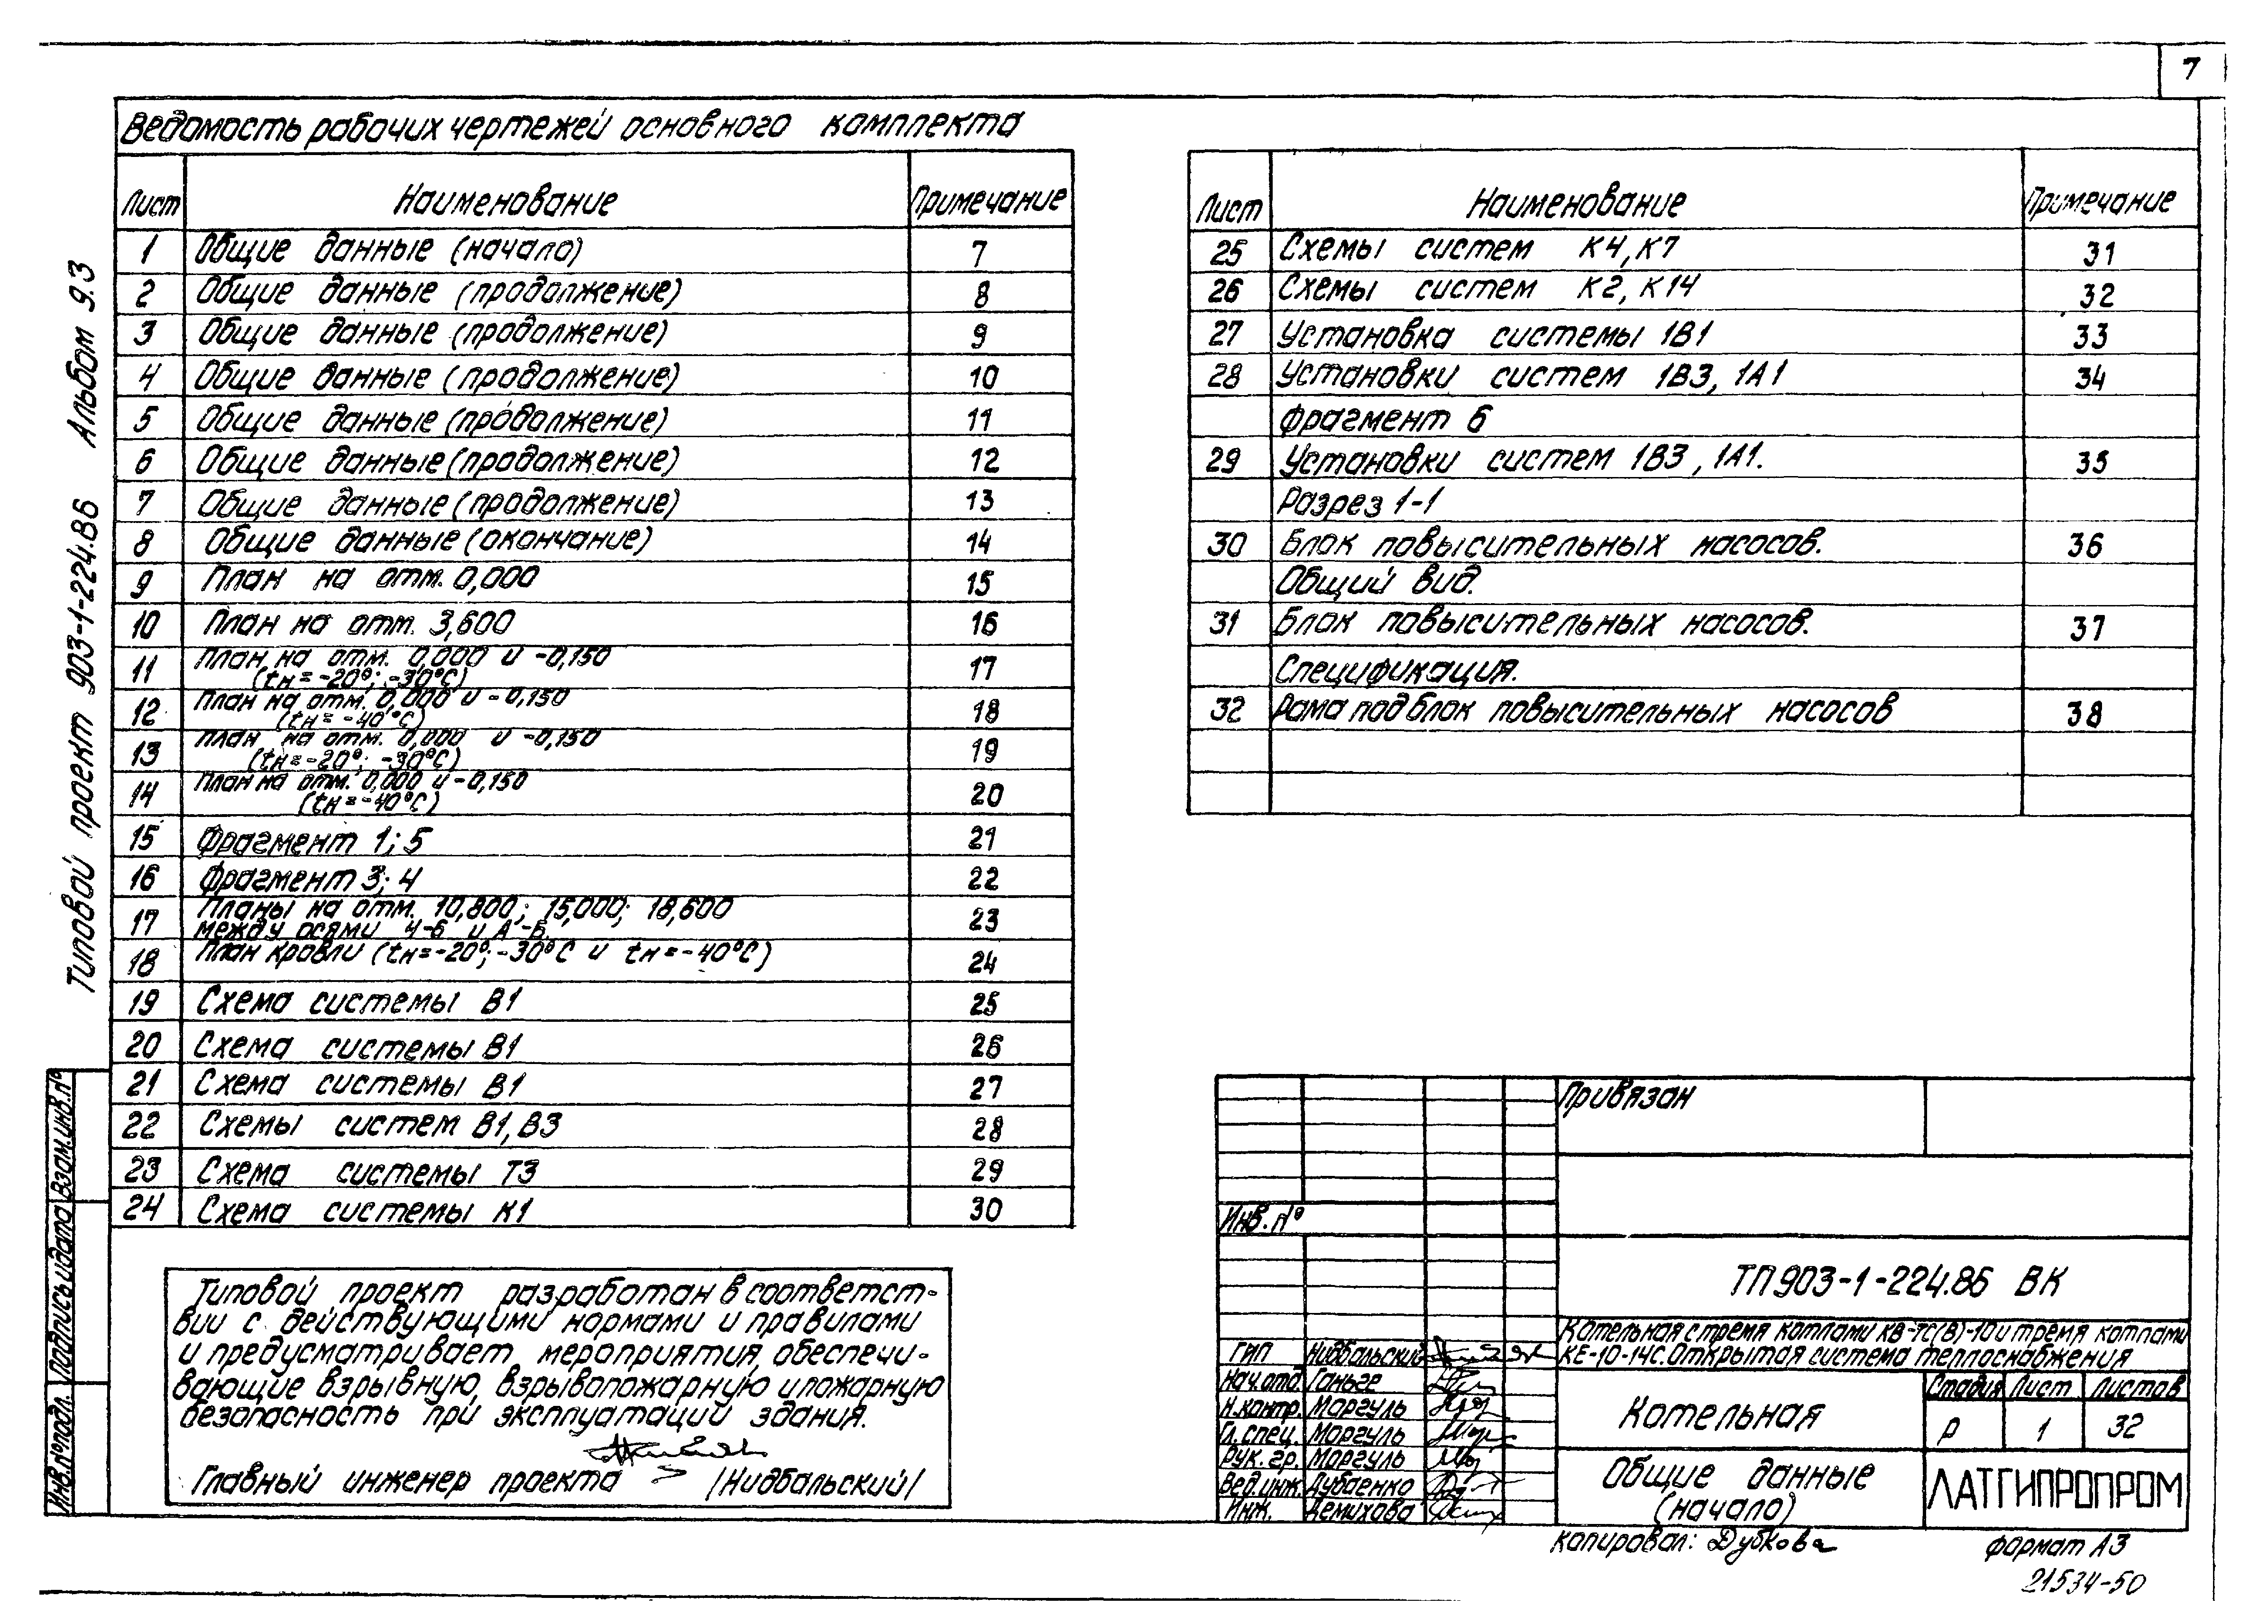 7
Ведомость рабочих чертежей основного комплекта
Лист Наименование Примечание
1 Общие данные (начало) 7
2 Общие данные (продолжение) 8
3 Общие данные (продолжение) 9
4 Общие данные (продолжение) 10
5 Общие данные (продолжение) 11
6 Общие данные (продолжение) 12
7 Общие данные (продолжение) 13
8 Общие данные (окончание) 14
9 План на отм. 0,000 15
10 План на отм. 3,600 16
11 План на отм. 0,000 и -0,150 17
(tн=-20°; -30°С)
12 План на отм. 0,000 и -0,150 18
(tн=-40°С)
13 План на отм. 0,000 и -0,150 19
(tн=-20°; -30°С)
14 План на отм. 0,000 и -0,150 20
(tн=-40°С)
15 Фрагмент 1; 5 21
16 Фрагмент 3; 4 22
17 Планы на отм. 10,800; 15,000; 18,600 23
между осями 4-6 и А-Б
18 План кровли (tн=-20°; -30°С и tн=-40°С) 24
19 Схема системы В1 25
20 Схема системы В1 26
21 Схема системы В1 27
22 Схемы систем В1, В3 28
23 Схема системы Т3 29
24 Схема системы К1 30
Лист Наименование Примечание
25 Схемы систем К4, К7 31
26 Схемы систем К2, К14 32
27 Установка системы 1В1 33
28 Установки систем 1В3, 1А1 34
Фрагмент 6
29 Установки систем 1В3, 1А1. 35
Разрез 1-1
30 Блок повысительных насосов. 36
Общий вид.
31 Блок повысительных насосов. 37
Спецификация.
32 Рама под блок повысительных насосов 38
Типовой проект 903-1-224.86 Альбом 9.3
Взам.инв.№
Подпись и дата
Инв.№ подл.
Типовой проект разработан в соответст-
вии с действующими нормами и правилами
и предусматривает мероприятия, обеспечи-
вающие взрывную, взрывопожарную и пожарную
безопасность при эксплуатации здания.
Главный инженер проекта /Нидбальский/
Привязан
Инв. №
ТП 903-1-224.86 ВК
Котельная с тремя котлами КВ-ТС(В)-10 и тремя котлами
КЕ-10-14С. Открытая система теплоснабжения
ГИП Нидбальский
Нач.отд. Ганьге
Н.контр. Моргуль
Гл.спец. Моргуль
Рук. гр. Моргуль
Вед.инж. Дубаенко
Инж. Демихова
Котельная
Стадия Лист Листов
Р 1 32
Общие данные
(начало)
ЛАТГИПРОПРОМ
Копировал: Дубкова
Формат А3
21534-50